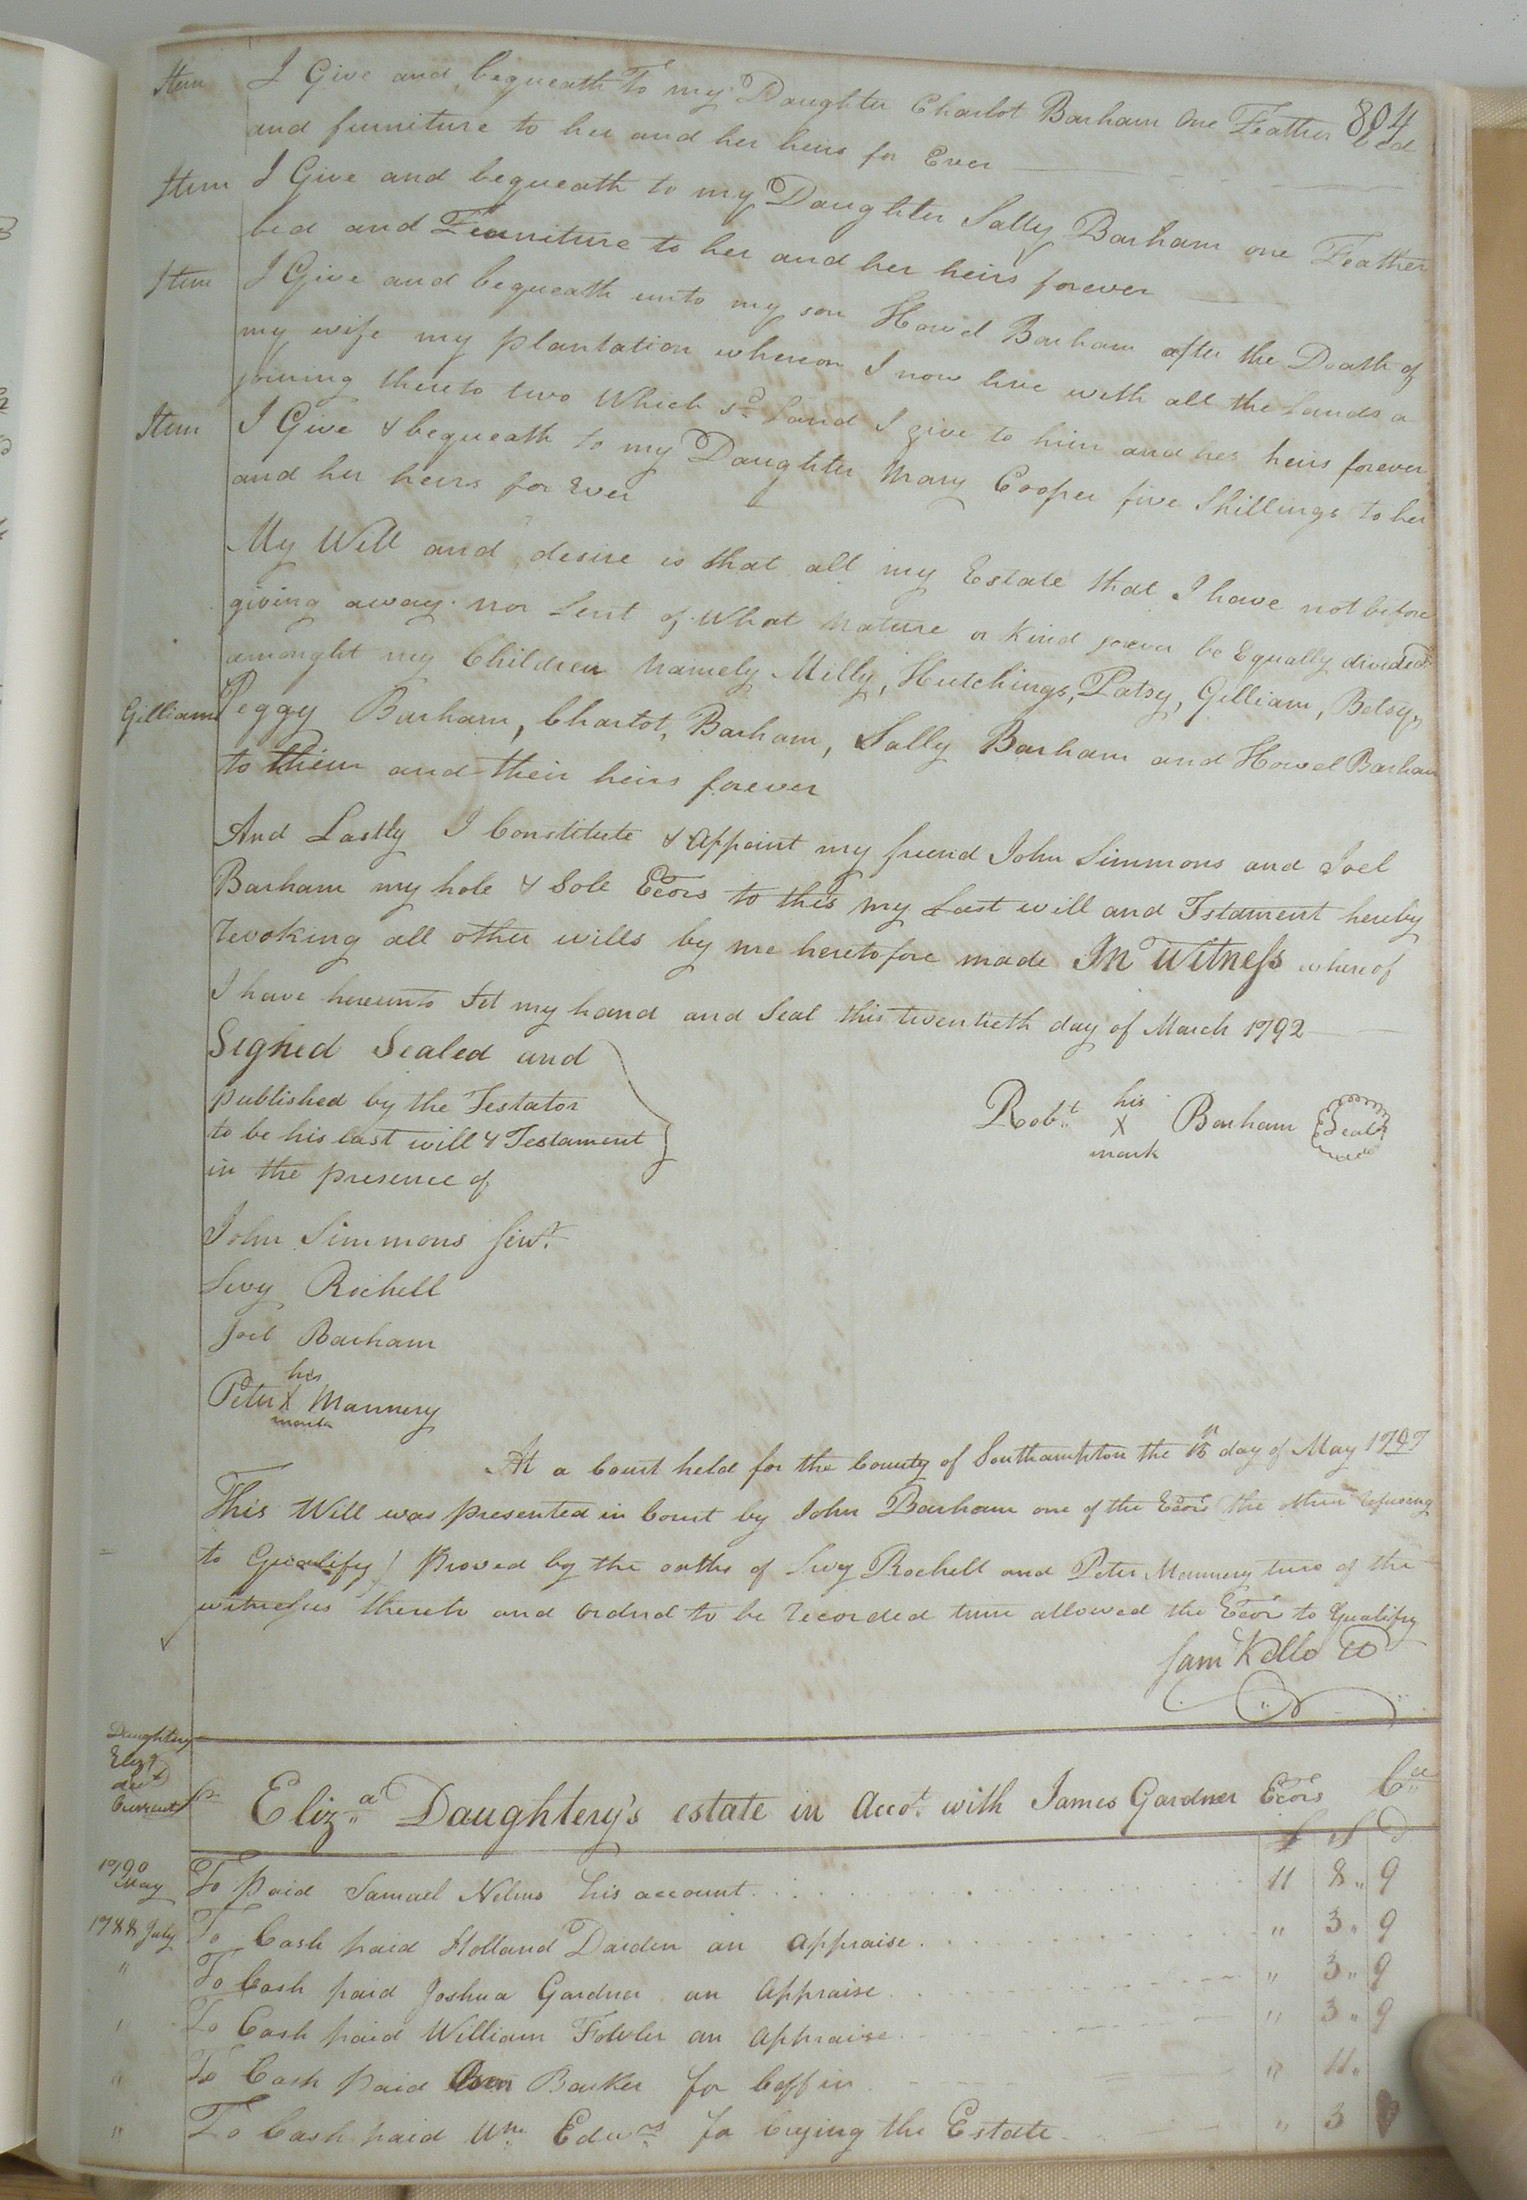 804
Item I Give and bequeath To my Daughter Charlot Barham One Feather bed
and furniture to her and her heirs for Ever
Item I Give and bequeath to my Daughter Sally Barham one Feather
bed and Furniture to her and her heirs forever
Item I Give and bequeath unto my son Howel Barham after the Death of
my wife my plantation whereon I now live with all the Lands a
joining thereto two Which sd Land I give to him and his heirs forever
Item I Give & bequeath to my Daughter Mary Cooper five Shillings to her
and her heirs for Ever
My Will and desire is that all my Estate that I have not before
giving away nor Lent of What Nature or Kind soever be Equally divided
amonght my Children Namely Milly, Hutchings, Patsy, Gilliam, Betsy,
Gilliam Peggy Barham, Charlot, Barham, Sally Barham and Howel Barham
to them and their heirs forever
And Lastly I Constitute & Appoint my friend John Simmons and Joel
Barham my hole & Sole Ecors to this my Last will and Tstament hereby
revoking all other wills by me heretofore made In Witness whereof
I have hereunto Set my hand and Seal this twentieth day of March 1792
Signed Sealed and
published by the Testator
to be his last will & Testament
in the presence of
Robt. his X mark Barham Seal
John Simmons
Levy Rochell
Joel Barham
Peter his X mark Mannery
At a Court held for the County of Southampton the day of May 1797
This Will was presented in Court by John Barham one of the Ecors the other refusing
to Qualify) proved by the oaths of Levy Rochell and Peter Mannery two of the
witnesses thereto and Ordrd to be recorded time allowed the Ecor to Qualify
Sam Kello
Daughtery
Eliza
Current
Eliza Daughtery's estate in Accot. with James Gardner Ecors Cr
£ S D
1790 May To paid Samuel Nelms his account 11 8 9
1788 July To Cash paid Holland Darden an Appraise " 3 9
" To Cash paid Joshua Gardner an Appraise " 3 9
" To Cash paid William Fowler an Appraise " 3 9
" To Cash paid Barker for Coffin " 11
" To Cash paid Wm. Edwds for Crying the Estate " 3